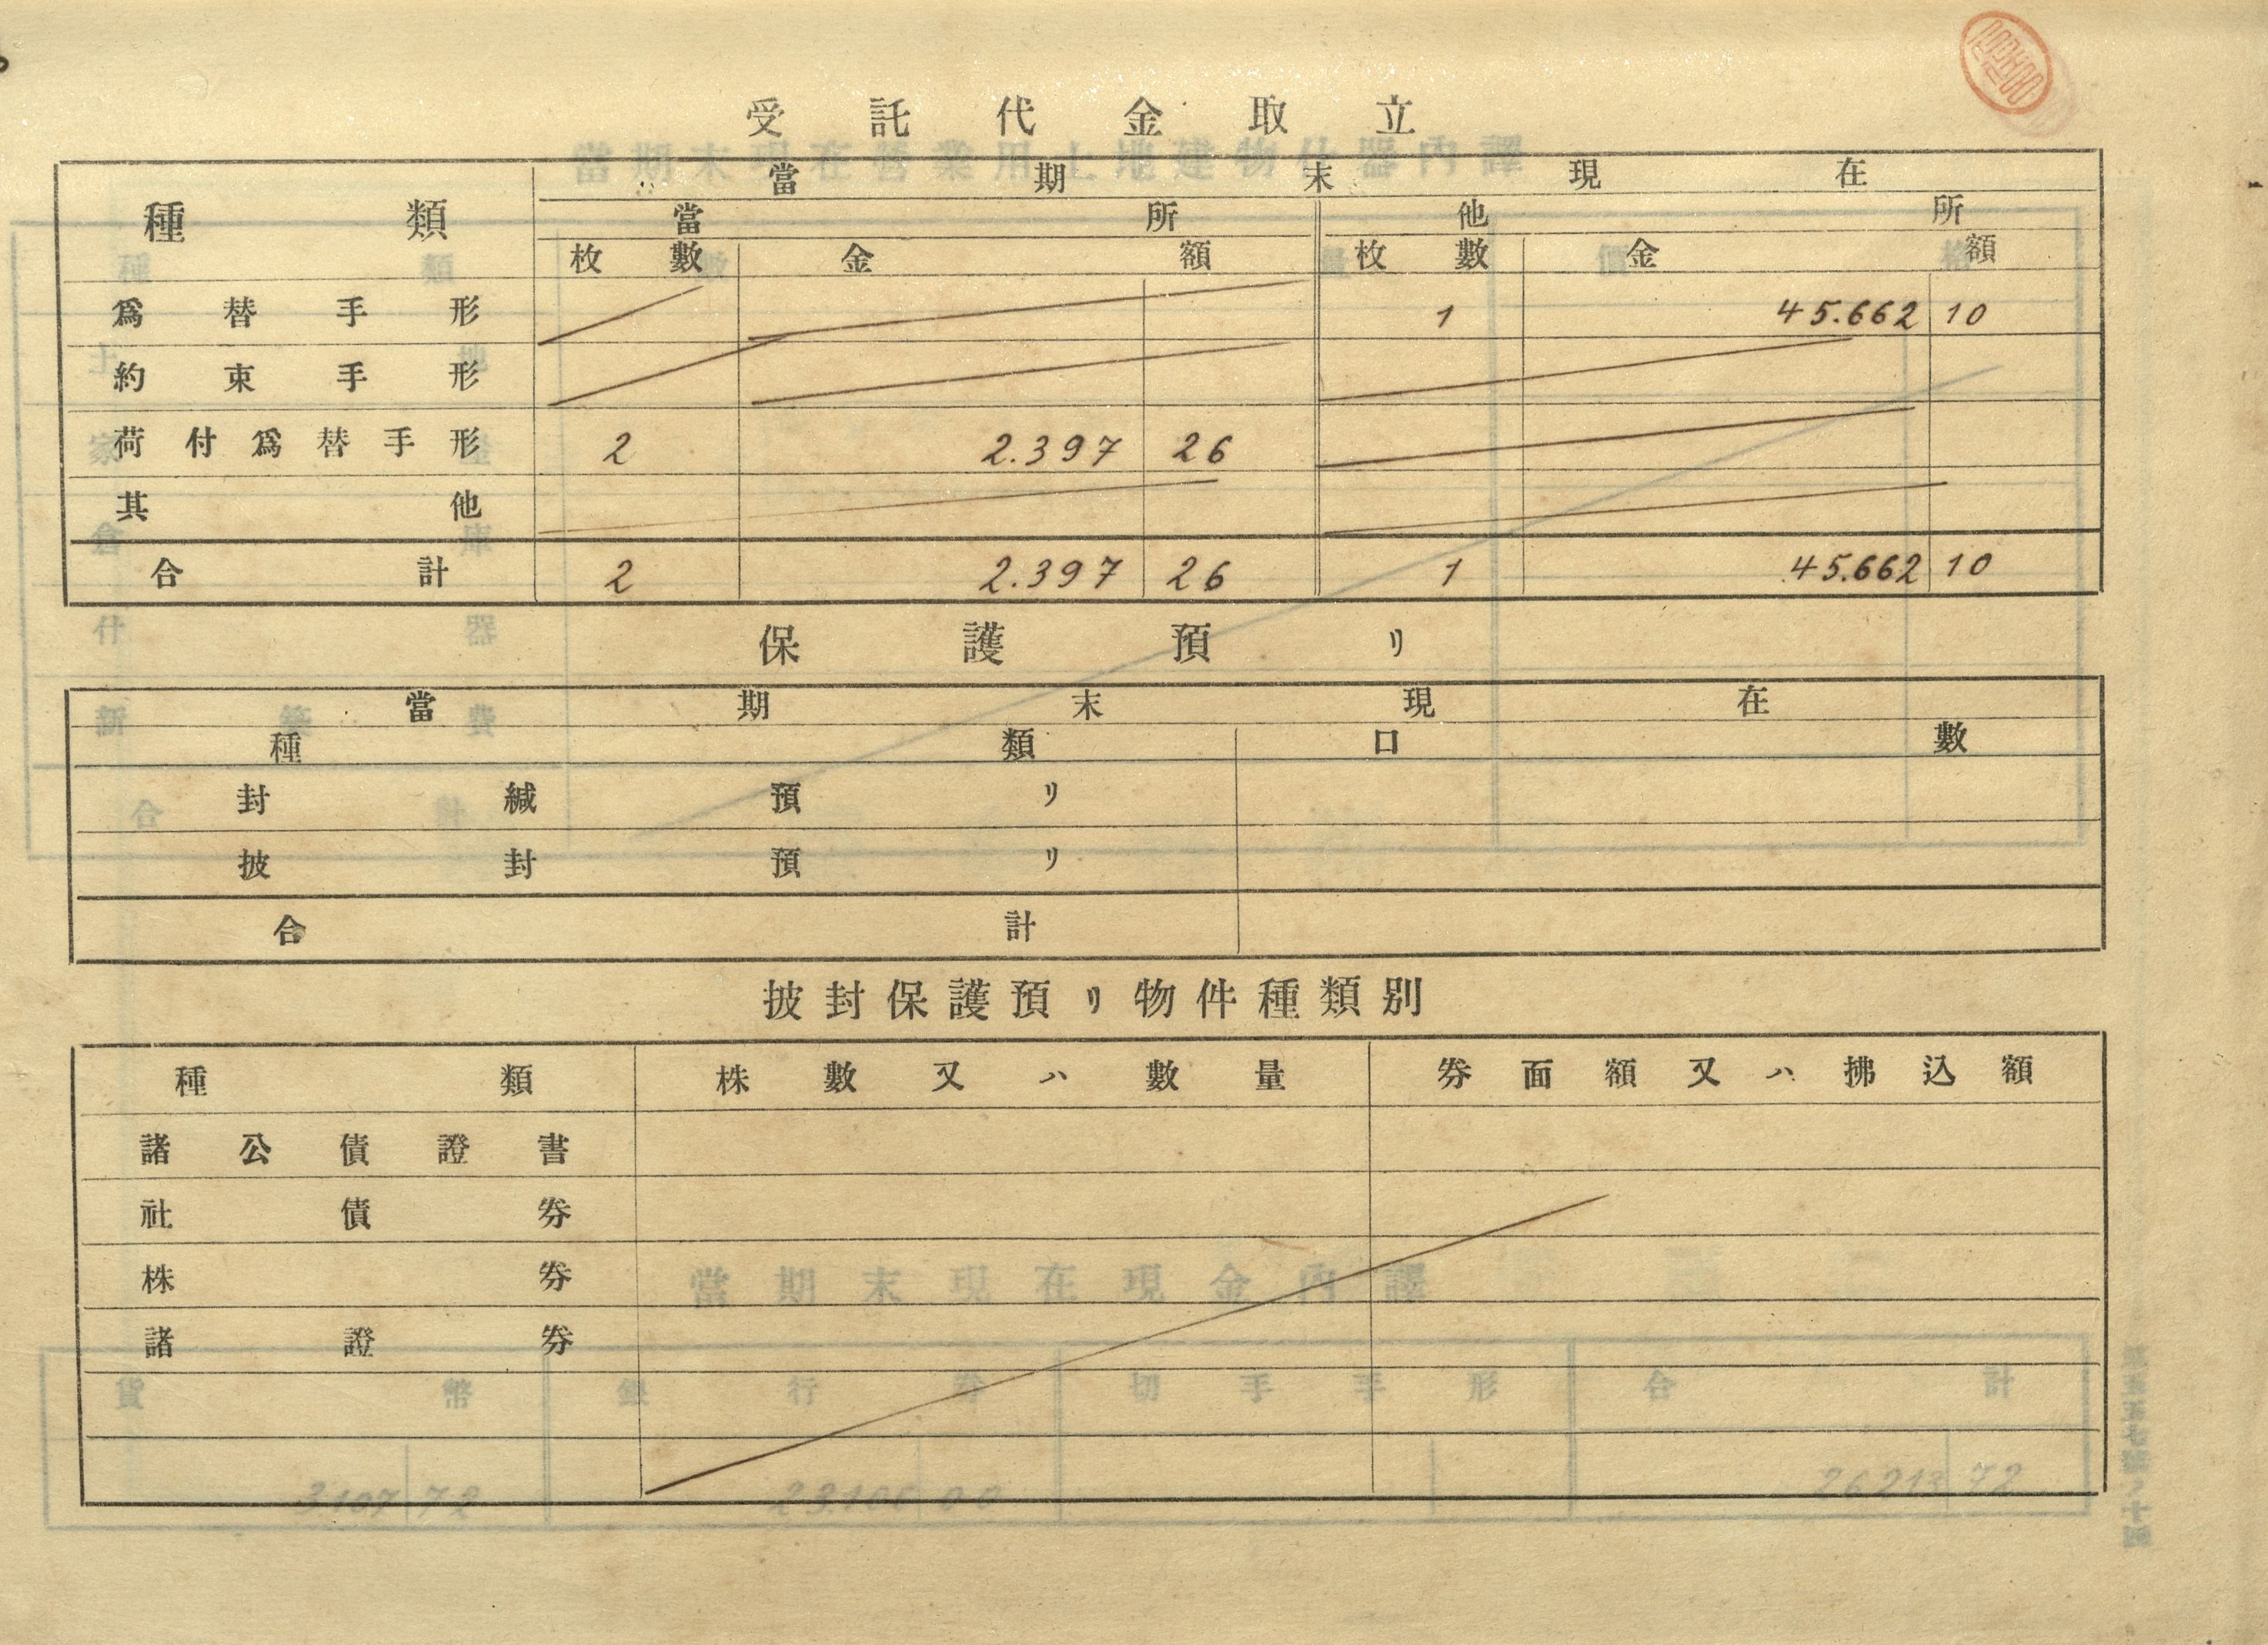 受託代金取立
種類 當期末現在
當所 他所
枚數 金額 枚數 金額
爲替手形 1 45.662 10
約束手形
荷付爲替手形 2 2.397 26
其他
合計 2 2.397 26 1 45.662 10
保護預リ
當期末現在
種類 口數
封緘預リ
披封預リ
合計
披封保護預リ物件種類別
種類 株數又ハ數量 券面額又ハ拂込額
諸公債證書
社債券
株券
諸證券